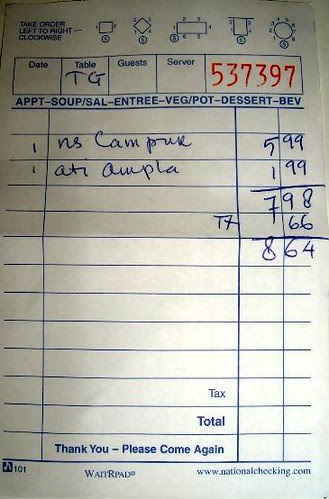 TAKE ORDER
LEFT TO RIGHT
CLOCKWISE
Date Table Guests Server 537397
TG
APPT-SOUP/SAL-ENTREE-VEG/POT-DESSERT-BEV
1 ns Campur 5 99
1 ati ampla 1 99
7 98
TX 66
8 64
Tax
Total
Thank You – Please Come Again
101 WAITRPAD® www.nationalchecking.com